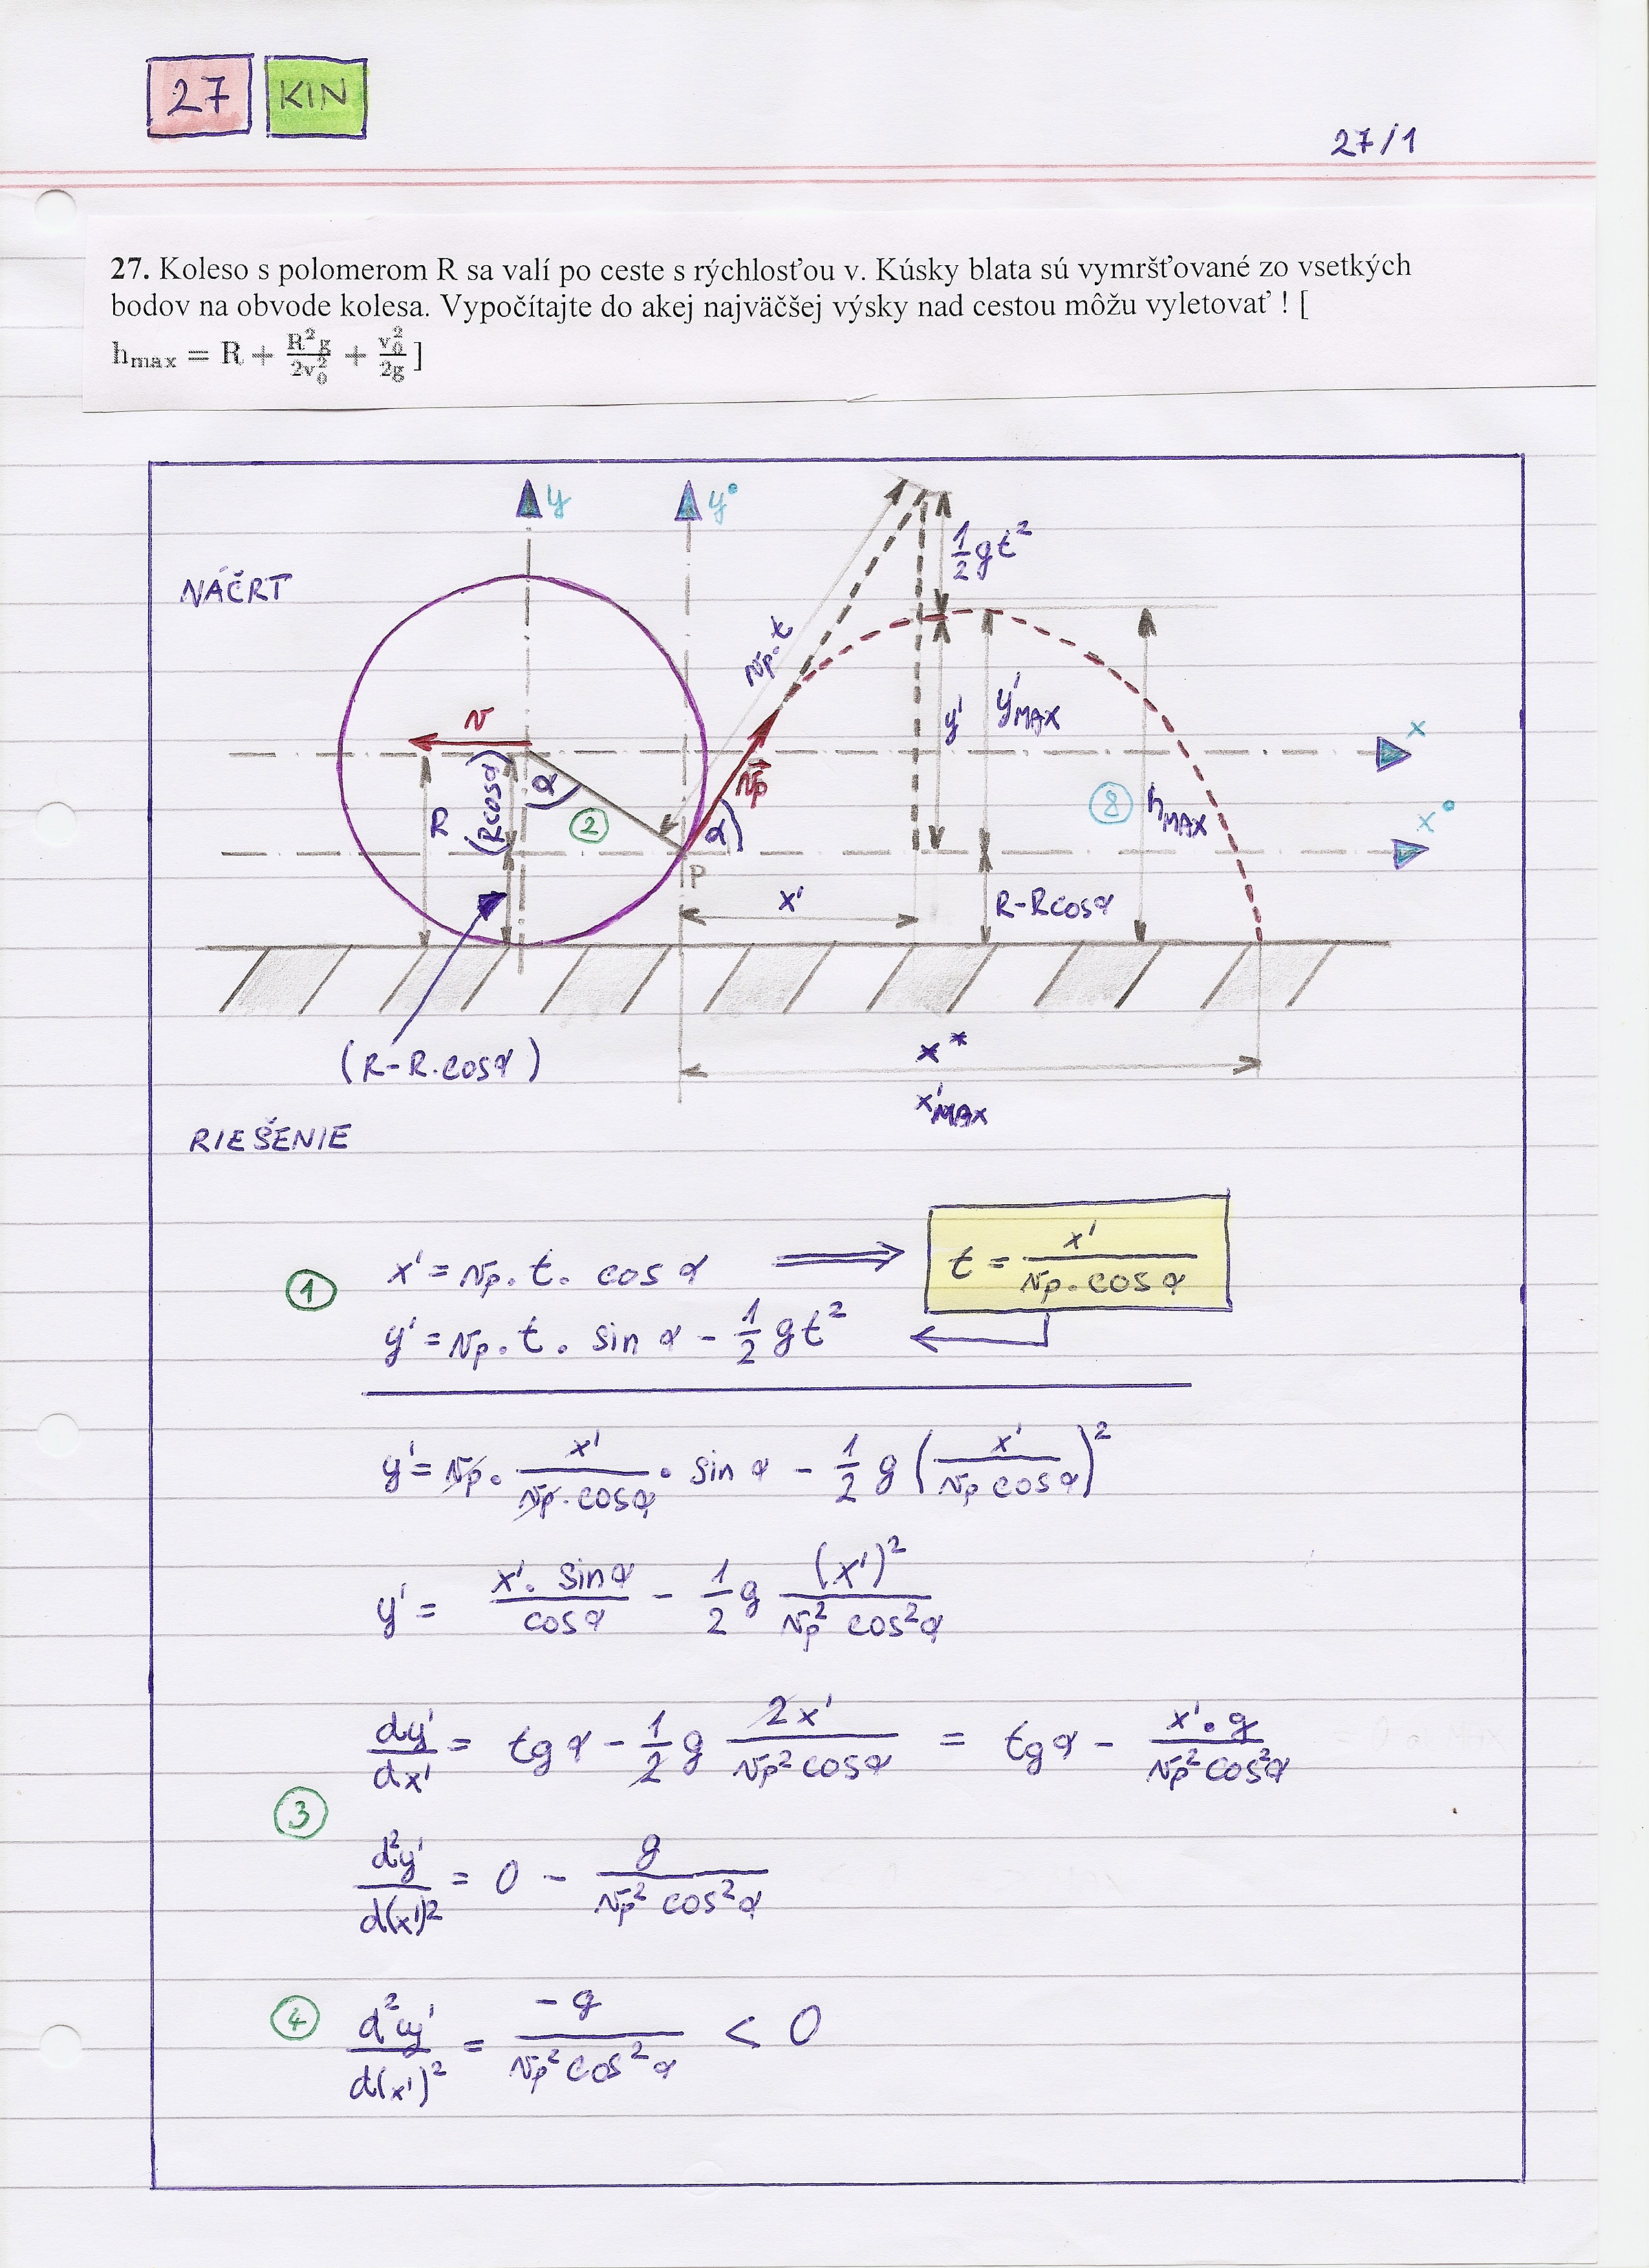 27 KIN
27/1
27. Koleso s polomerom R sa valí po ceste s rýchlosťou v. Kúsky blata sú vymršťované zo vsetkých
bodov na obvode kolesa. Vypočítajte do akej najväčšej výsky nad cestou môžu vyletovať ! [
h_max = R + R²g/2v₀² + v₀²/2g ]
y y•
NÁČRT
1/2 gt²
vp·t
v
y' y'MAX
x
R (Rcosα) α ② vp α ⑧ hMAX
x•
P
x' R-Rcosα
(R-R.cosα)
x*
x'MAX
RIEŠENIE
① x' = vp. t. cos α ⟹ t = x'/(vp. cos α)
y' = vp. t. sin α - 1/2 gt² ←
y' = vp. x'/(vp. cosα) . sin α - 1/2 g (x'/(vp cosα))²
y' = x'. sinα/cosα - 1/2 g (x')²/(vp² cos²α)
dy'/dx' = tg α - 1/2 g 2x'/(vp² cosα) = tg α - x'.g/(vp² cos²α)
③
d²y'/d(x')² = 0 - g/(vp² cos²α)
④ d²y'/d(x')² = -g/(vp² cos²α) < 0